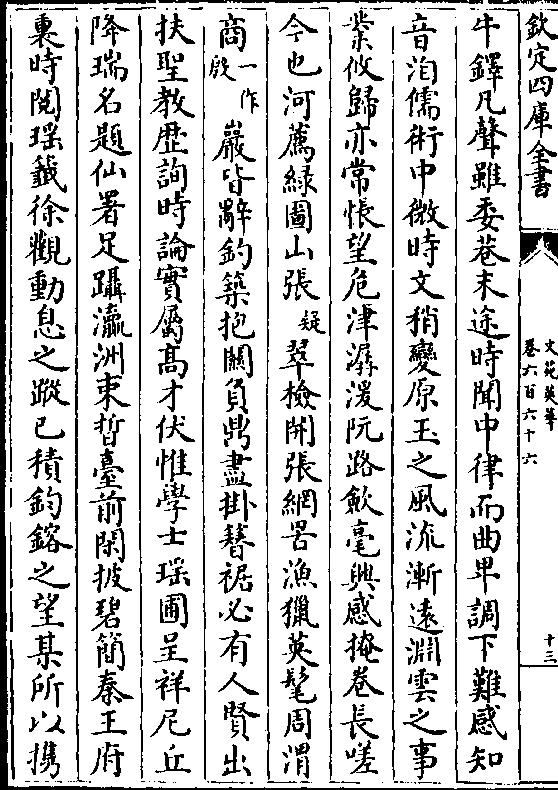 欽定四庫全書
文苑英華
卷六百六十六
十三
牛鐸凡聲雖委巷末途時聞中律而曲卑調下難感知
音洎儒術中微時文稍變原玉之風流漸遠淵雲之事
業攸歸亦常悵望危津潺湲阮路歛毫興感掩卷長嗟
今也河薦緑圖山張疑翠檢開張網罟漁獵英髦周渭
商一作殷巖皆辭釣築抱關負鼎盡掛簪裾必有人賢出
扶聖教歴詢時論實屬髙才伏惟學士瑶圃呈祥尼丘
降瑞名題仙署足躡瀛洲束晳臺前閑披碧簡秦王府
裏時閲瑶籤徐觀動息之蹤已積鈞鎔之望某所以携